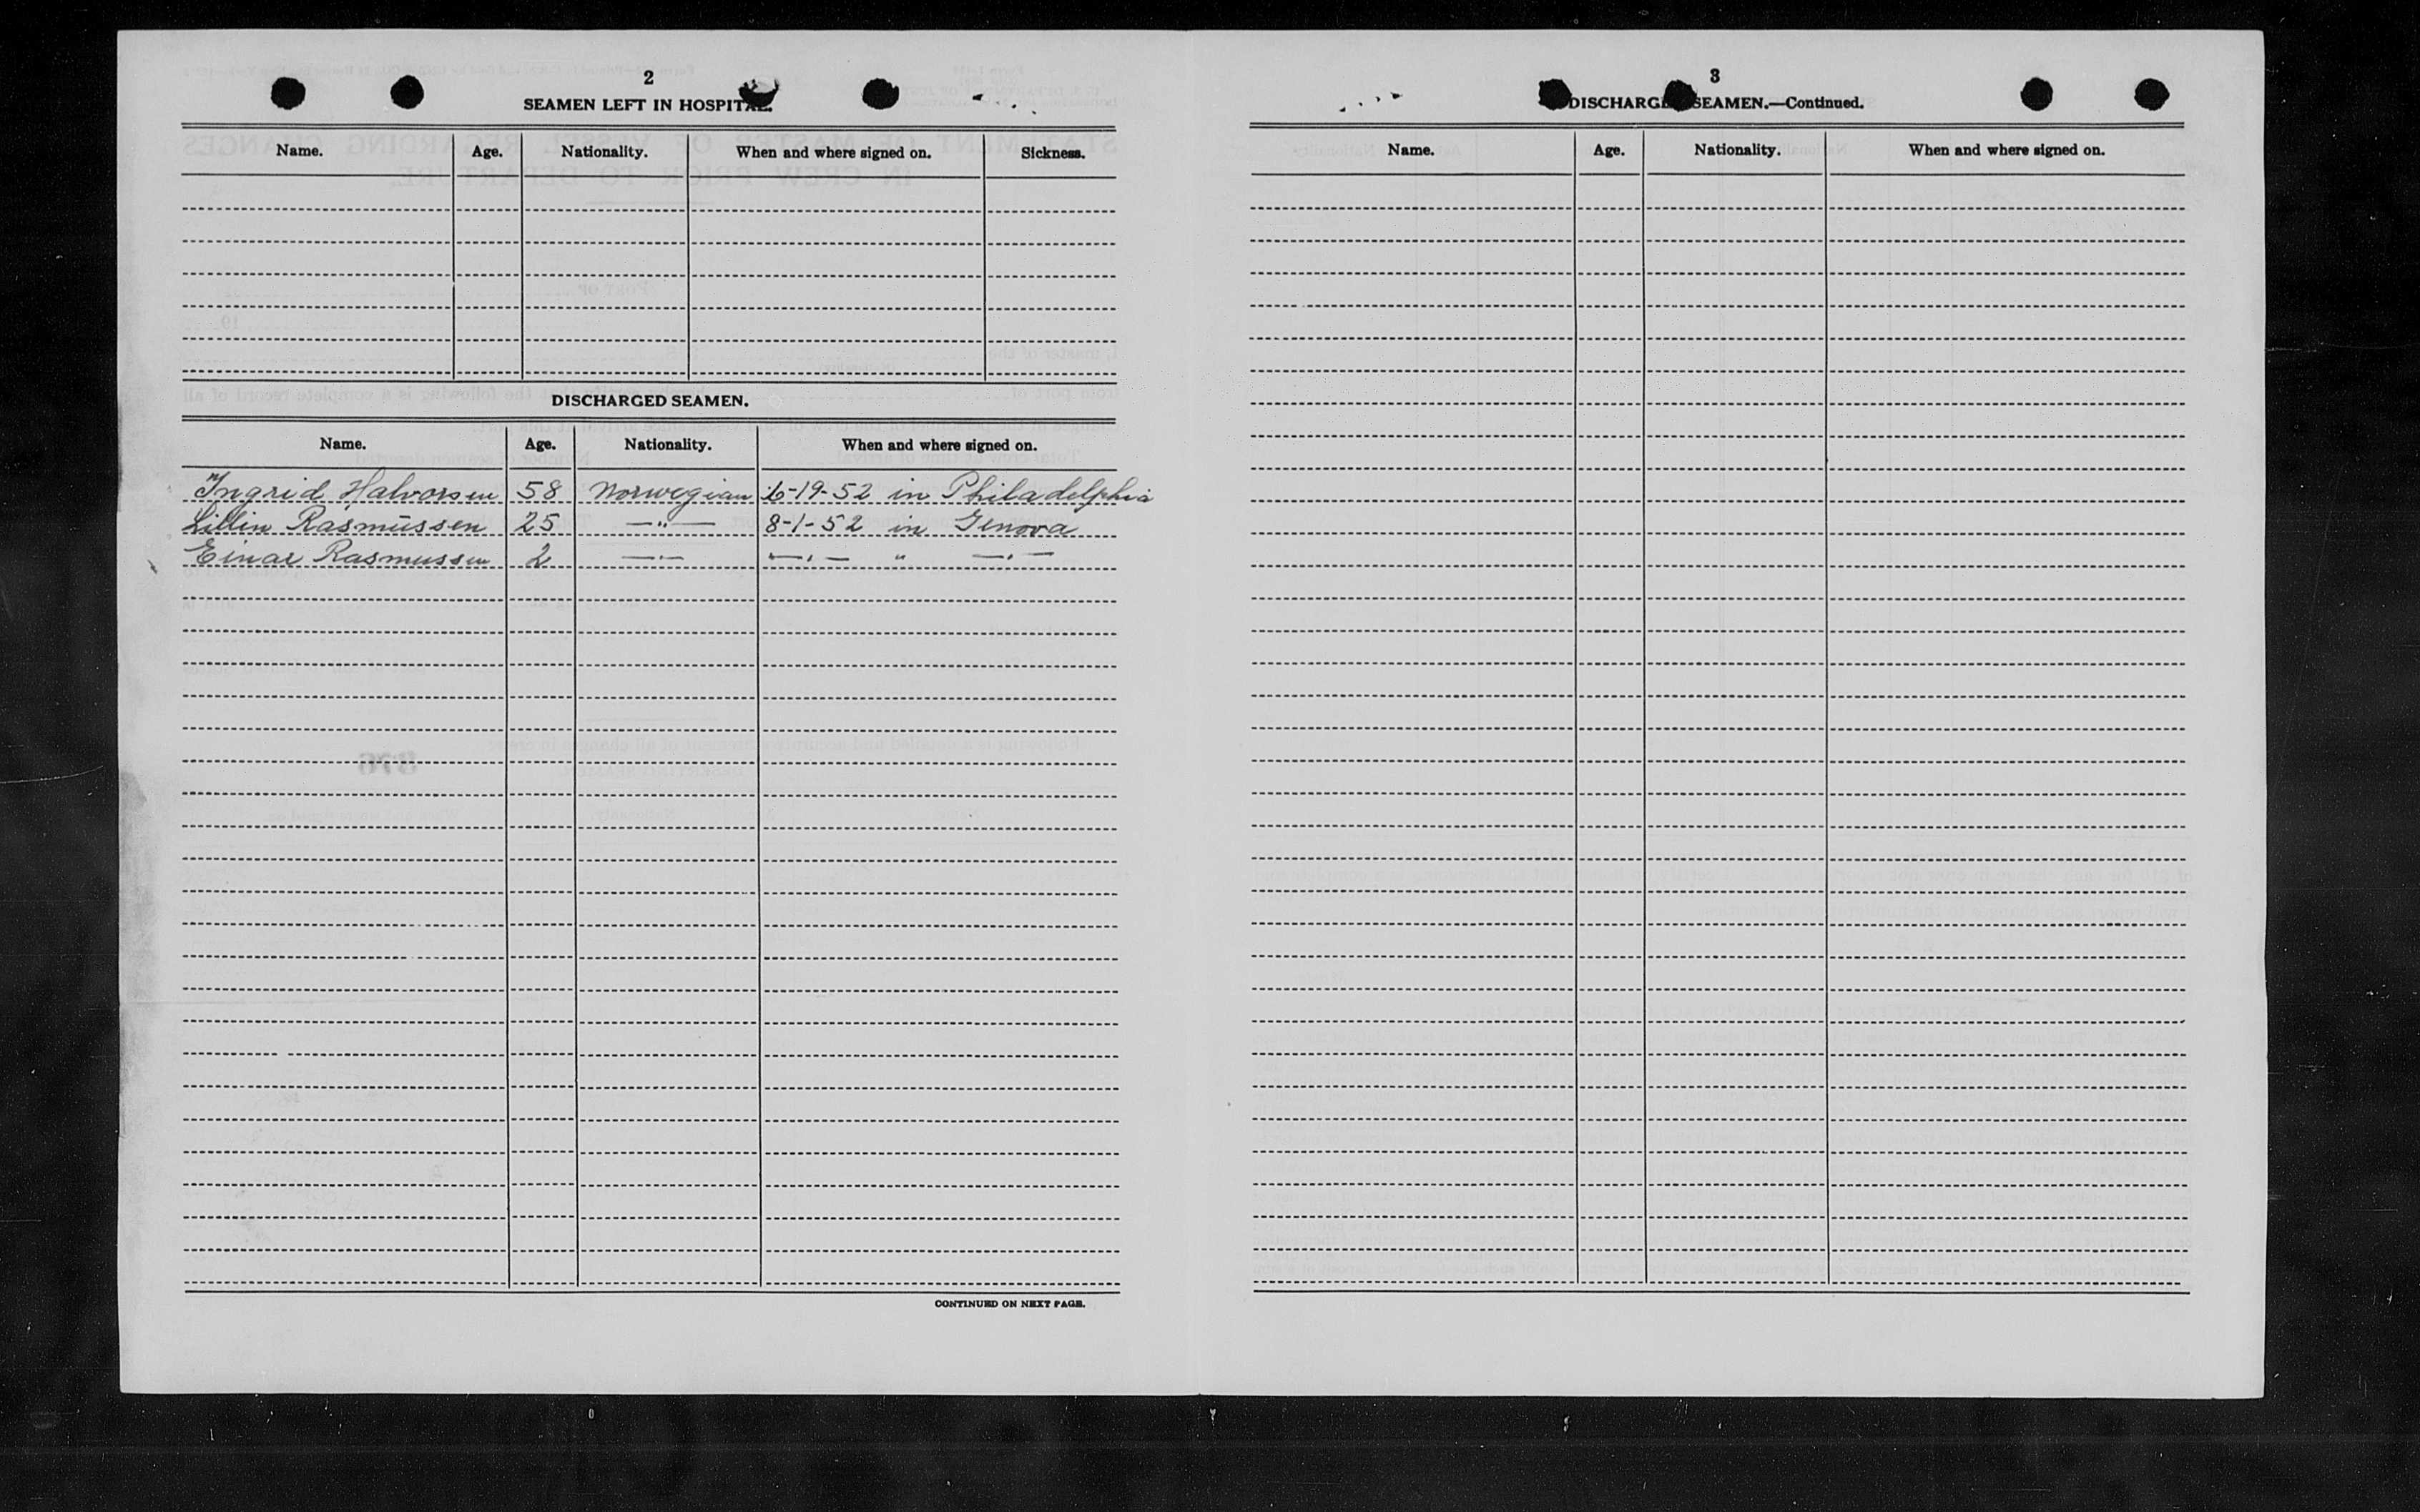 2
SEAMEN LEFT IN HOSPITAL.
Name. Age. Nationality. When and where signed on. Sickness.
DISCHARGED SEAMEN.
Name. Age. Nationality. When and where signed on.
Ingrid Halvorsen 58 Norwegian 6-19-52 in Philadelphia
Lillin Rasmussen 25 —"— 8-1-52 in Genova
Einar Rasmussen 2 —"— —"— " —"—
CONTINUED ON NEXT PAGE.
3
DISCHARGED SEAMEN.—Continued.
Name. Age. Nationality. When and where signed on.